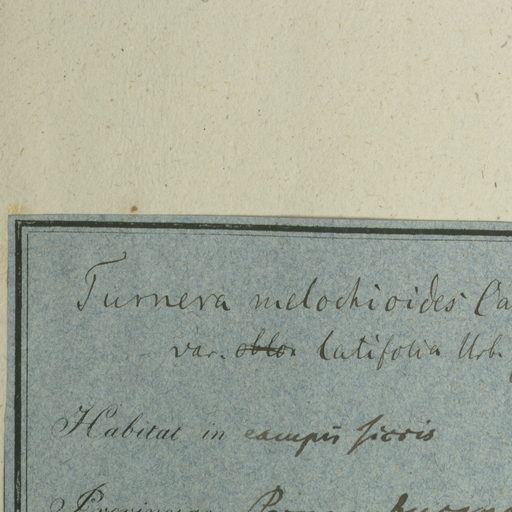 Turnera melochioides Ca
var. latifolia Urb.
Habitat in campis siccis